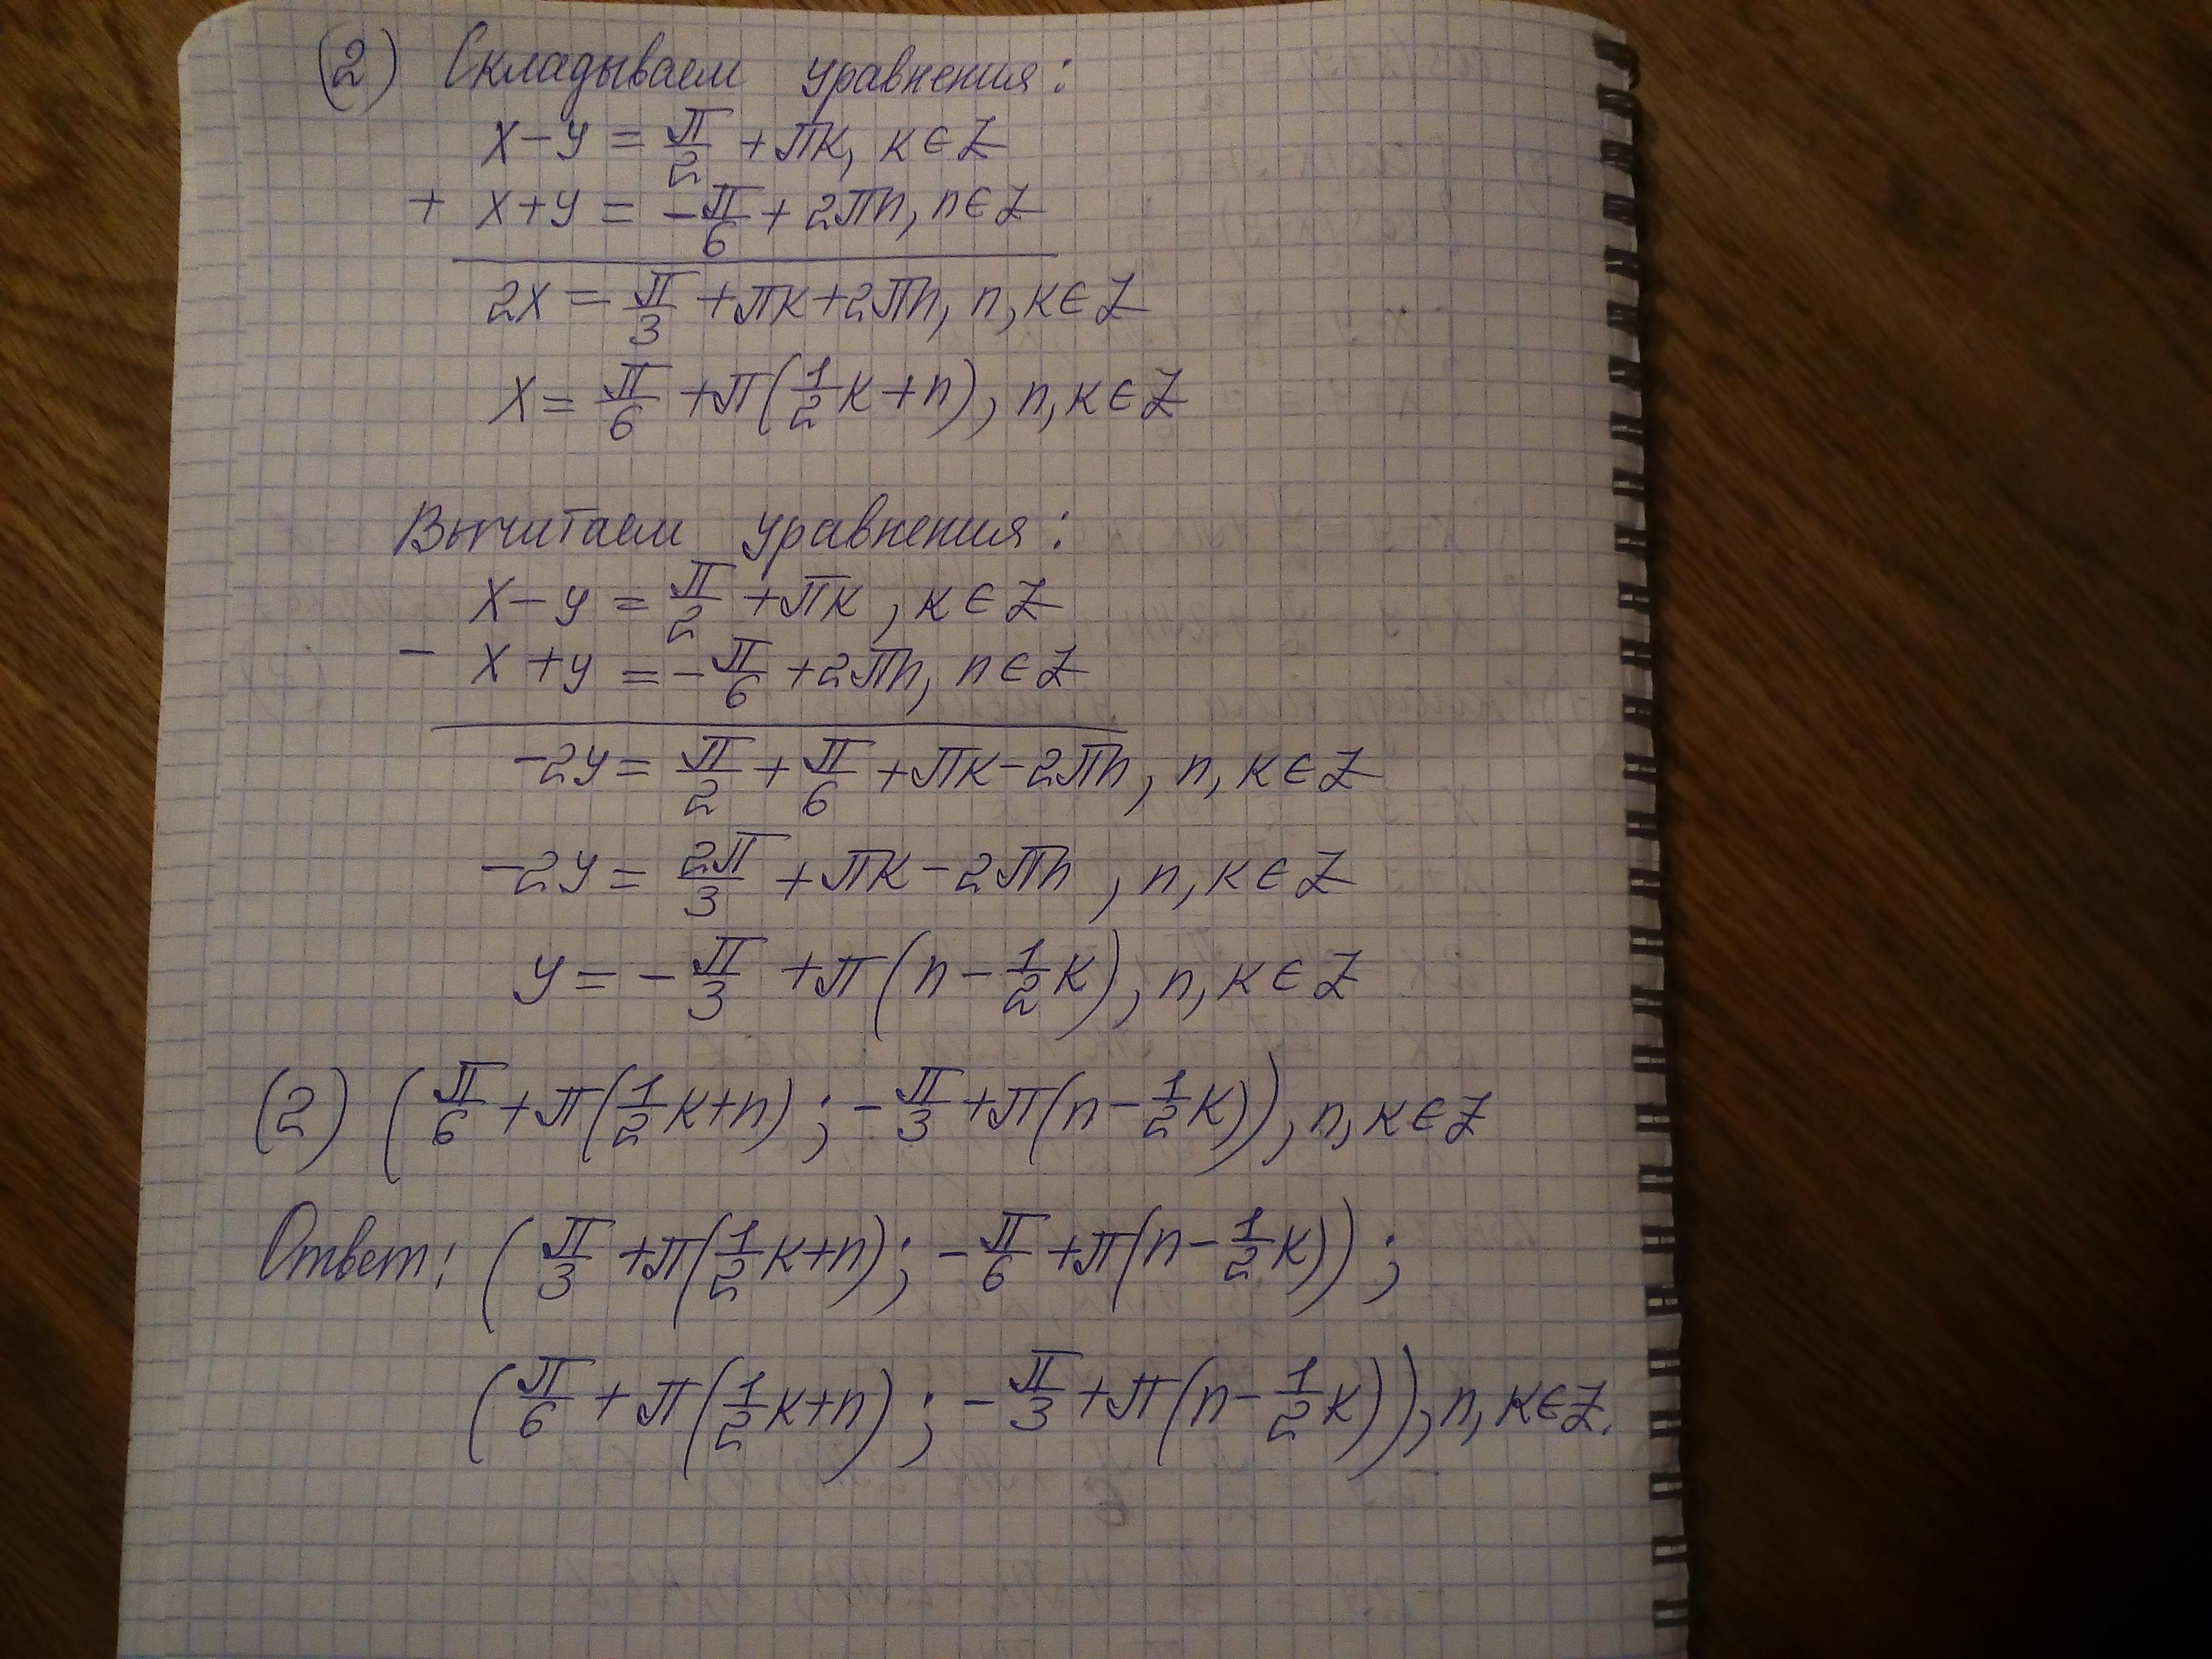 (2) Складываем уравнения:
x-y = π/2 + πk, k∈Z
+ x+y = -π/6 + 2πn, n∈Z
2x = π/3 + πk+2πn, n,k∈Z
x = π/6 + π(1/2k+n), n,k∈Z
Вычитаем уравнения:
x-y = π/2 + πk, k∈Z
- x+y = -π/6 + 2πn, n∈Z
-2y = π/2 + π/6 + πk-2πn, n,k∈Z
-2y = 2π/3 + πk-2πn, n,k∈Z
y = -π/3 + π(n-1/2k), n,k∈Z
(2) (π/6 + π(1/2k+n); -π/3 + π(n-1/2k)), n,k∈Z
Ответ: (π/3 + π(1/2k+n); -π/6 + π(n-1/2k));
(π/6 + π(1/2k+n); -π/3 + π(n-1/2k)), n,k∈Z.